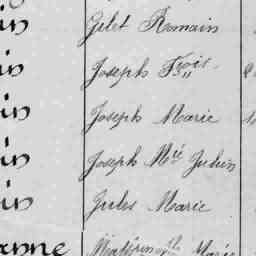 in Gilet Romain
in Joseph Fçois
in Joseph Marie
in Joseph Mie Julien
in Jules Marie
anne Mathurin